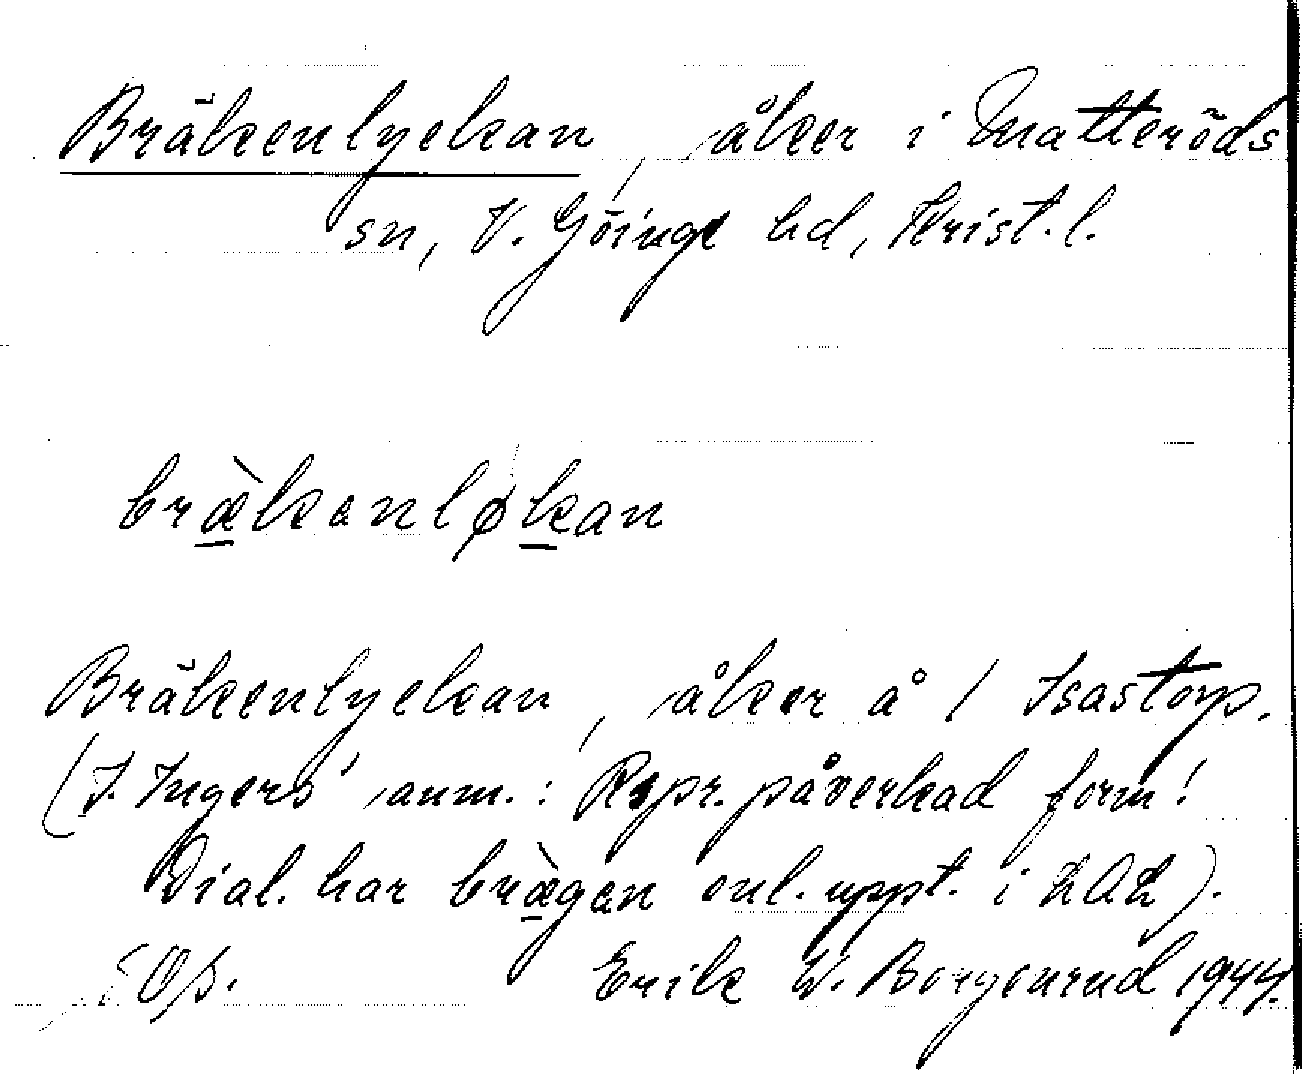 Bräkenlyckan, åker i Matteröds
sn, V. Göinge hd, Krist. l.
bræ̀kanløkan
Bräkenlyckan, åker å 1 Isastorp.
(I. Ingers' anm.: Rspr. påverkad form!
Dial. har bræ̀gan enl. uppt. i LAL).
Erik W. Borgenrud 1944.